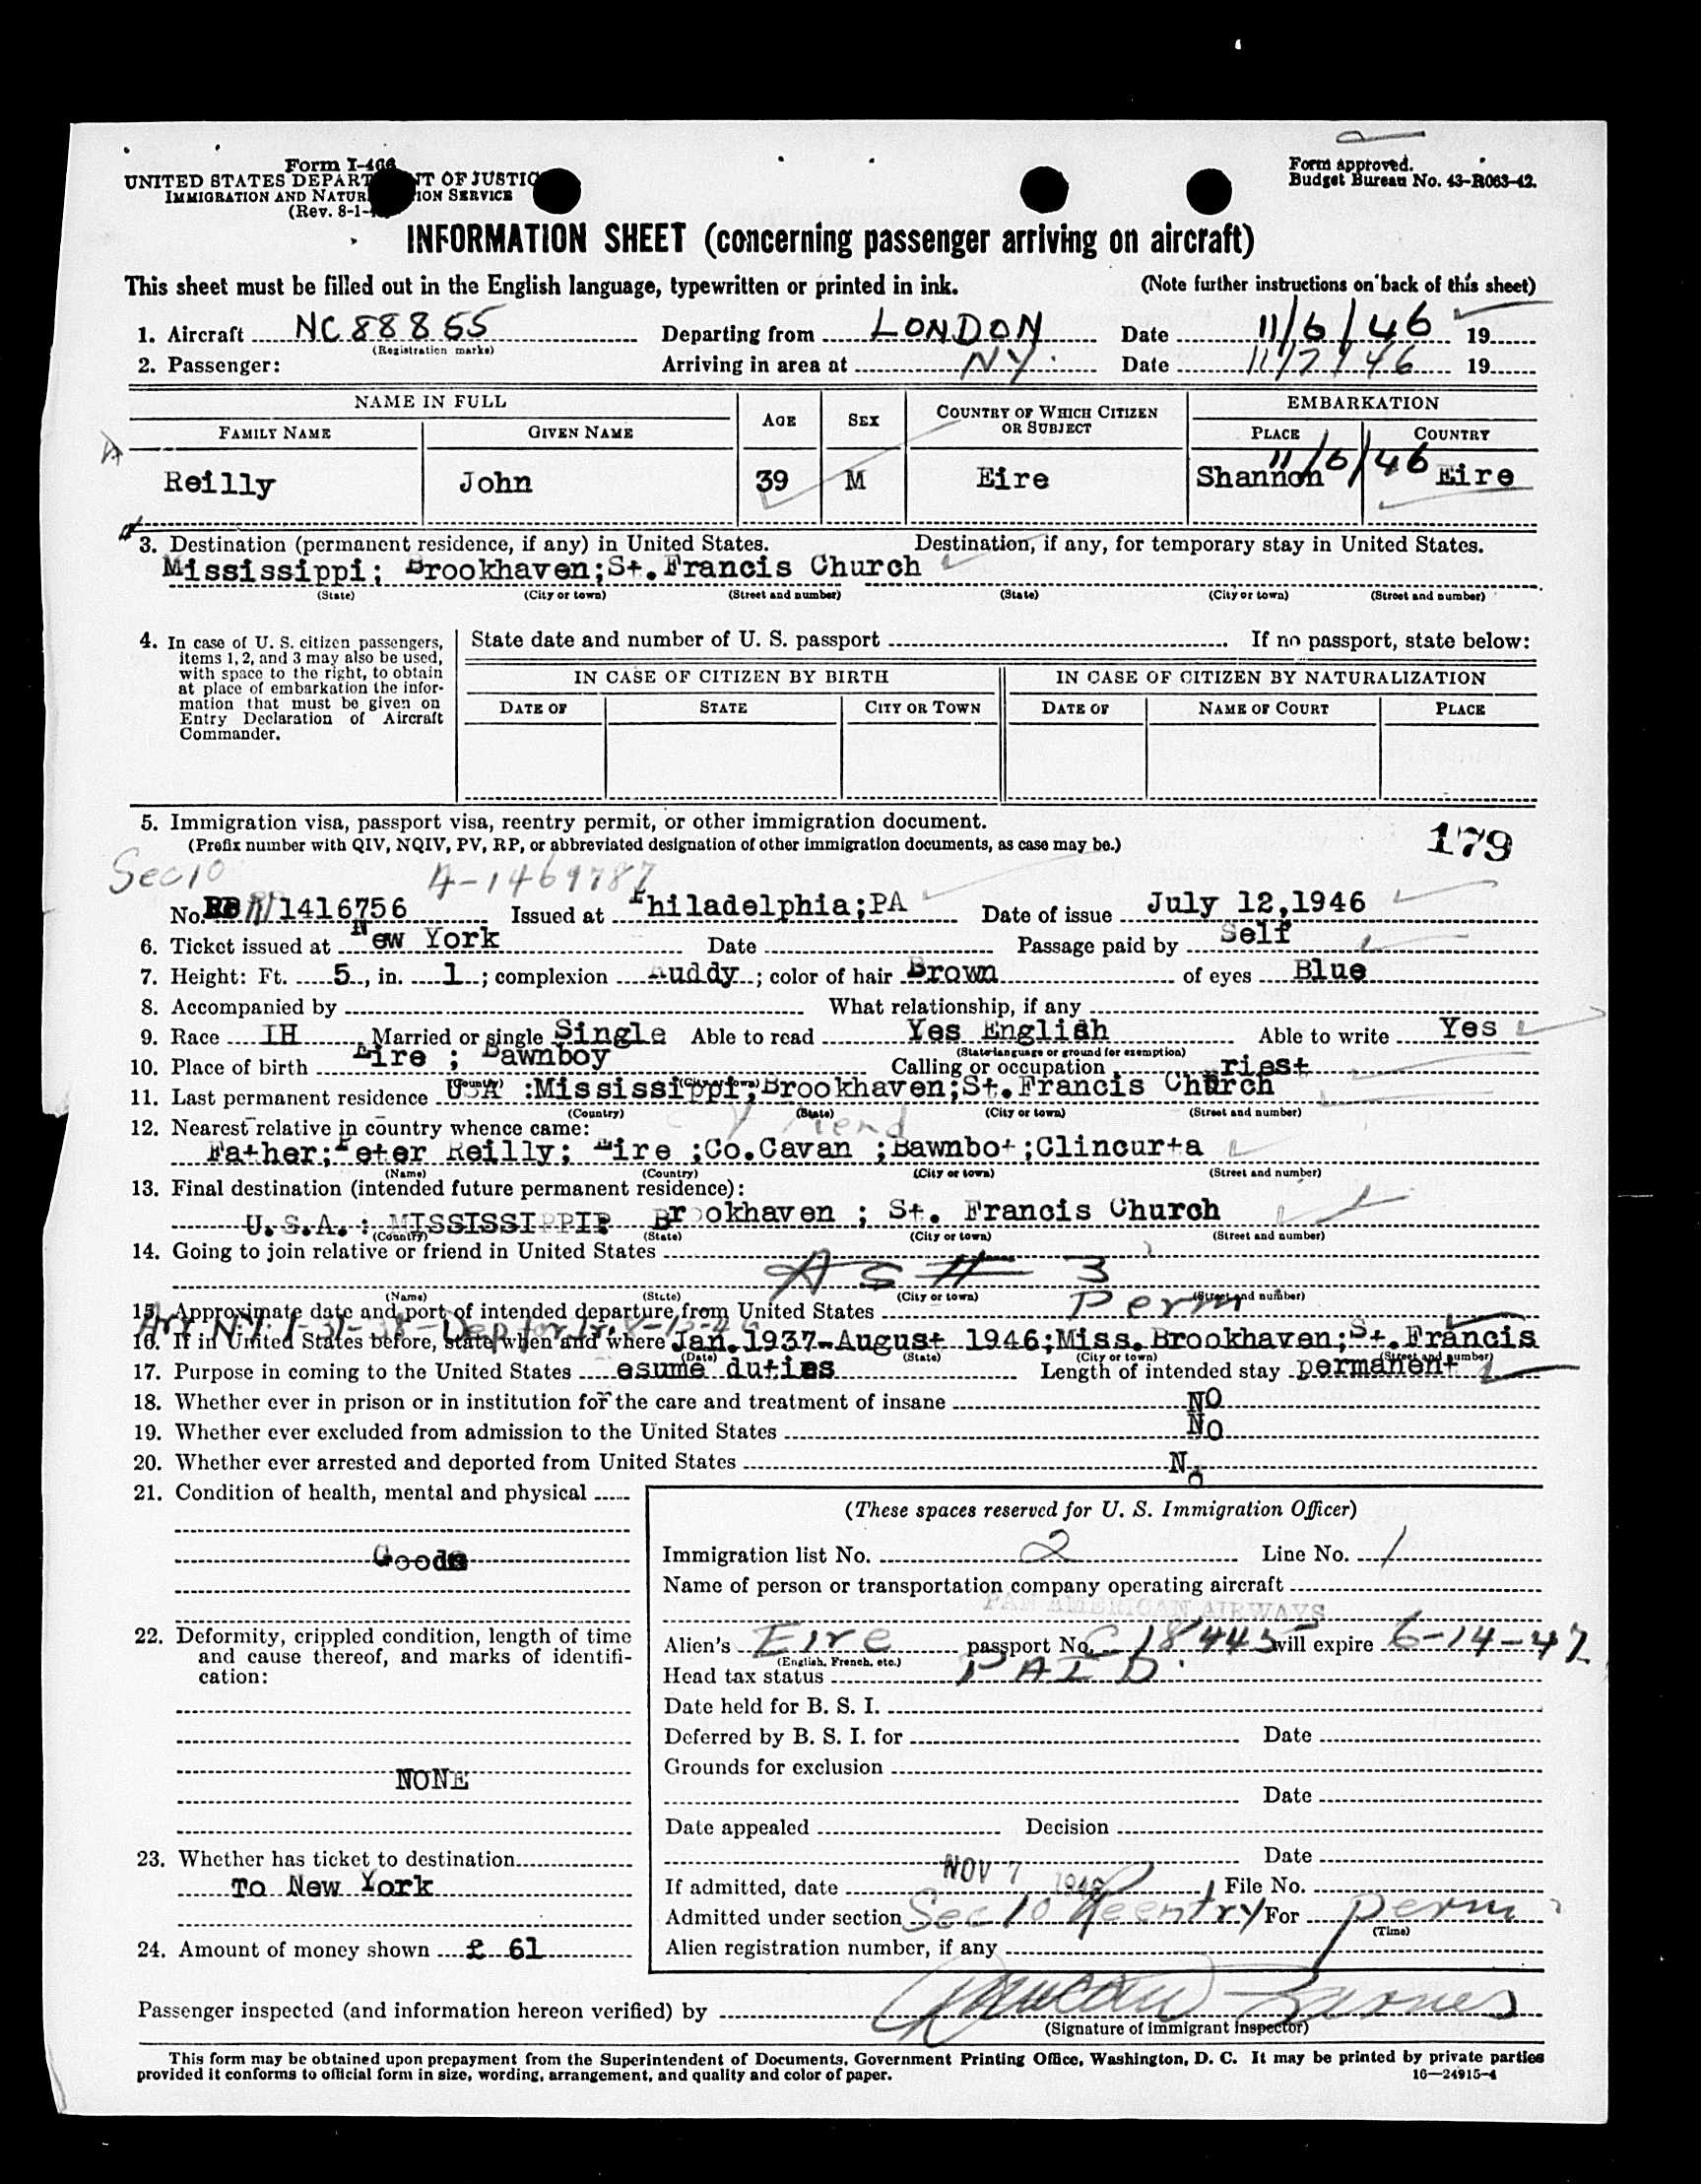 Form I-466
UNITED STATES DEPART NT OF JUSTIC
IMMIGRATION AND NATUR ION SERVICE
(Rev. 8-1-
Form approved.
Budget Bureau No. 43-R063-42.
INFORMATION SHEET (concerning passenger arriving on aircraft)
This sheet must be filled out in the English language, typewritten or printed in ink. (Note further instructions on back of this sheet)
1. Aircraft NC 88855 Departing from LONDON Date 11/6/46 19
(Registration marks)
2. Passenger: Arriving in area at NY. Date 11/7/46 19
NAME IN FULL AGE SEX COUNTRY OF WHICH CITIZEN OR SUBJECT EMBARKATION
FAMILY NAME GIVEN NAME PLACE COUNTRY
11/6/46
Reilly John 39 M Eire Shannon Eire
3. Destination (permanent residence, if any) in United States. Destination, if any, for temporary stay in United States.
Mississippi; Brookhaven;St.Francis Church
(State) (City or town) (Street and number) (State) (City or town) (Street and number)
4. In case of U. S. citizen passengers, items 1, 2, and 3 may also be used, with space to the right, to obtain at place of embarkation the information that must be given on Entry Declaration of Aircraft Commander.
State date and number of U. S. passport If no passport, state below:
IN CASE OF CITIZEN BY BIRTH IN CASE OF CITIZEN BY NATURALIZATION
DATE OF STATE CITY OR TOWN DATE OF NAME OF COURT PLACE
5. Immigration visa, passport visa, reentry permit, or other immigration document.
(Prefix number with QIV, NQIV, PV, RP, or abbreviated designation of other immigration documents, as case may be.)
179
Sec 10 A-1469787
No. 1416756 Issued at Philadelphia;PA Date of issue July 12,1946
6. Ticket issued at New York Date Passage paid by Self
7. Height: Ft. 5, in. 1; complexion uddy; color of hair Brown of eyes Blue
8. Accompanied by What relationship, if any
9. Race IH Married or single Single Able to read Yes English Able to write Yes
(State language or ground for exemption)
10. Place of birth Eire ; Bawnboy Calling or occupation riest
(Country) (City or town)
11. Last permanent residence USA :Mississippi;Brookhaven;St.Francis Church
(Country) (State) (City or town) (Street and number)
12. Nearest relative in country whence came:
Father;Peter Reilly; Eire ;Co.Cavan ;Bawnbot;Clincurta
(Name) (Country) (City or town) (Street and number)
13. Final destination (intended future permanent residence):
U.S.A.: MISSISSIPPIP Brookhaven ; St. Francis Church
(Country) (State) (City or town) (Street and number)
14. Going to join relative or friend in United States
As # 3
(Name) (State) (City or town) (Street and number)
15. Approximate date and port of intended departure from United States Perm
16. If in United States before, state when and where Jan.1937-August 1946;Miss.Brookhaven;St.Francis
(Date) (State) (City or town) (Street and number)
17. Purpose in coming to the United States esume duties Length of intended stay permanent
18. Whether ever in prison or in institution for the care and treatment of insane NO
19. Whether ever excluded from admission to the United States NO
20. Whether ever arrested and deported from United States No
21. Condition of health, mental and physical
Good
22. Deformity, crippled condition, length of time and cause thereof, and marks of identification:
NONE
23. Whether has ticket to destination
To New York
24. Amount of money shown £ 61
(These spaces reserved for U. S. Immigration Officer)
Immigration list No. 2 Line No. 1
Name of person or transportation company operating aircraft
PAN AMERICAN AIRWAYS
Alien's Eire passport No. C 18445 will expire 6-14-47
(English, French, etc.)
Head tax status PAID.
Date held for B. S. I.
Deferred by B. S. I. for Date
Grounds for exclusion
Date
Date appealed Decision
Date
If admitted, date NOV 7 1946 File No.
Admitted under section Sec 10 Reentry For perm
(Time)
Alien registration number, if any
Passenger inspected (and information hereon verified) by
(Signature of immigrant inspector)
This form may be obtained upon prepayment from the Superintendent of Documents, Government Printing Office, Washington, D. C. It may be printed by private parties
provided it conforms to official form in size, wording, arrangement, and quality and color of paper. 16—24915-4